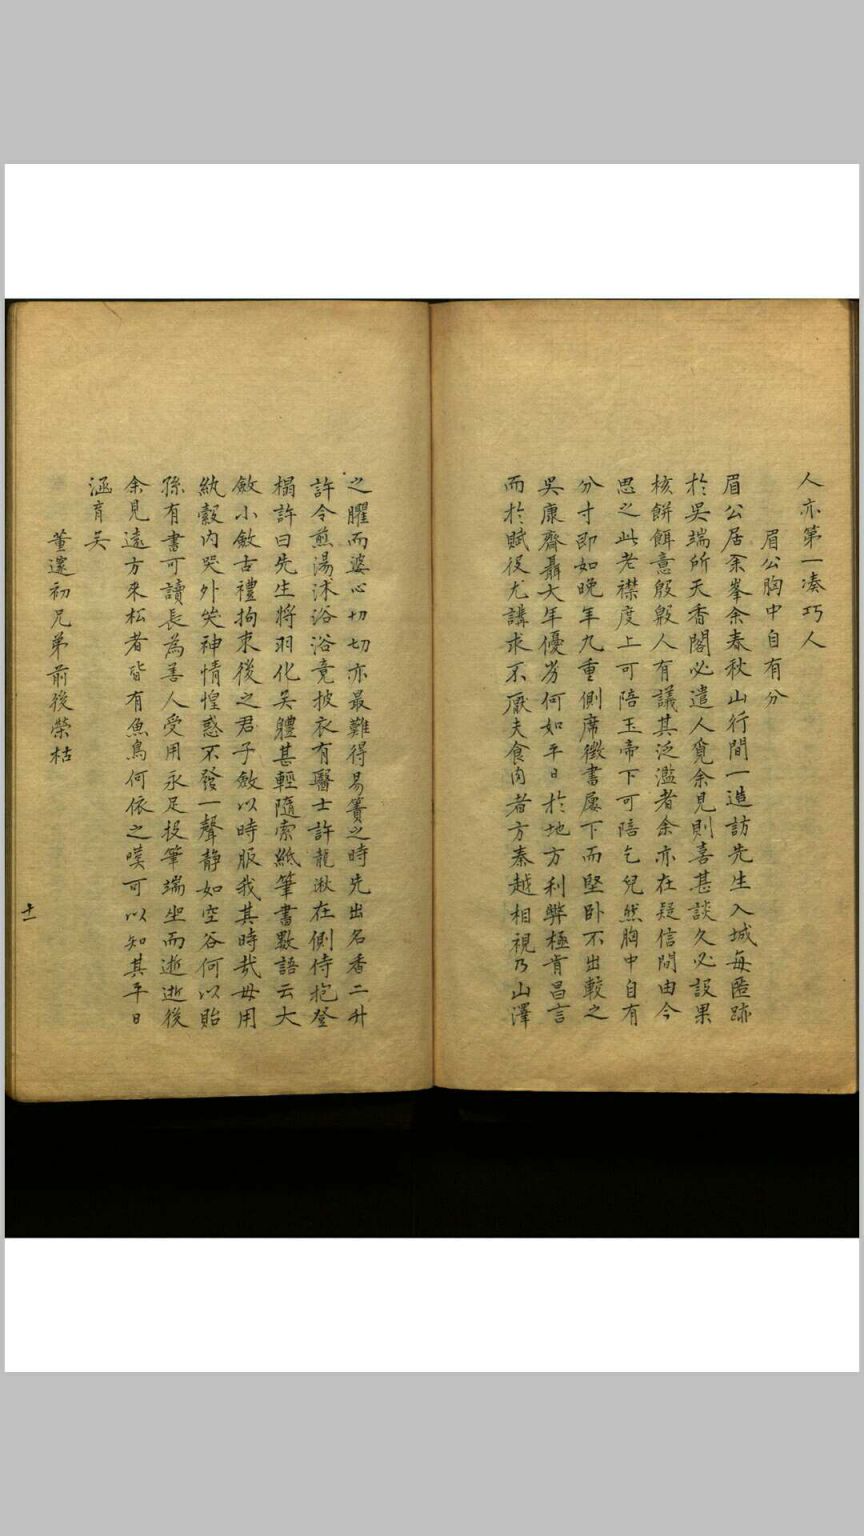 人亦第一湊巧人
眉公胸中自有分
眉公居佘峯余春秋山行間一造訪先生入城每匿跡
於吳端所天香閣必遣人覓余見則喜甚談久必設果
核餅餌意殷殷人有議其泛濫者余亦在疑信間由今
思之此老襟度上可陪玉帝下可陪乞兒然胸中自有
分寸即如晚年九重側席徵書屢下而堅卧不出較之
吳康齋聶大年優劣何如平日於地方利弊極肯昌言
而於賦役尤講求不厭夫食肉者方秦越相視乃山澤
之臞而婆心切切亦最難得易簀之時先出名香二升
許令煎湯沐浴浴竟披衣有醫士許龍湫在側侍抱登
榻許曰先生將羽化矣體甚輕隨索紙筆書數語云大
斂小斂古禮拘束後之君子斂以時服我其時哉毋用
紈縠內哭外笑神情惶惑不發一聲静如空谷何以貽
孫有書可讀長為善人受用永足投筆端坐而逝逝後
余見遠方來松者皆有魚鳥何依之嘆可以知其平日
涵育矣
董邃初兄弟前後榮枯
十一